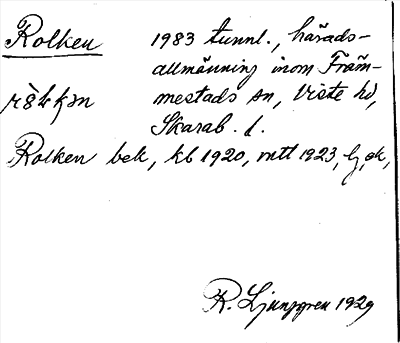 Rolken 1983 tunnl., härads-
allmänning inom Främ-
mestads sn, Viste hd,
Skarab. l.
Rolken bek, kb 1920, mtt 1923, lj, ek,
R. Ljunggren 1929